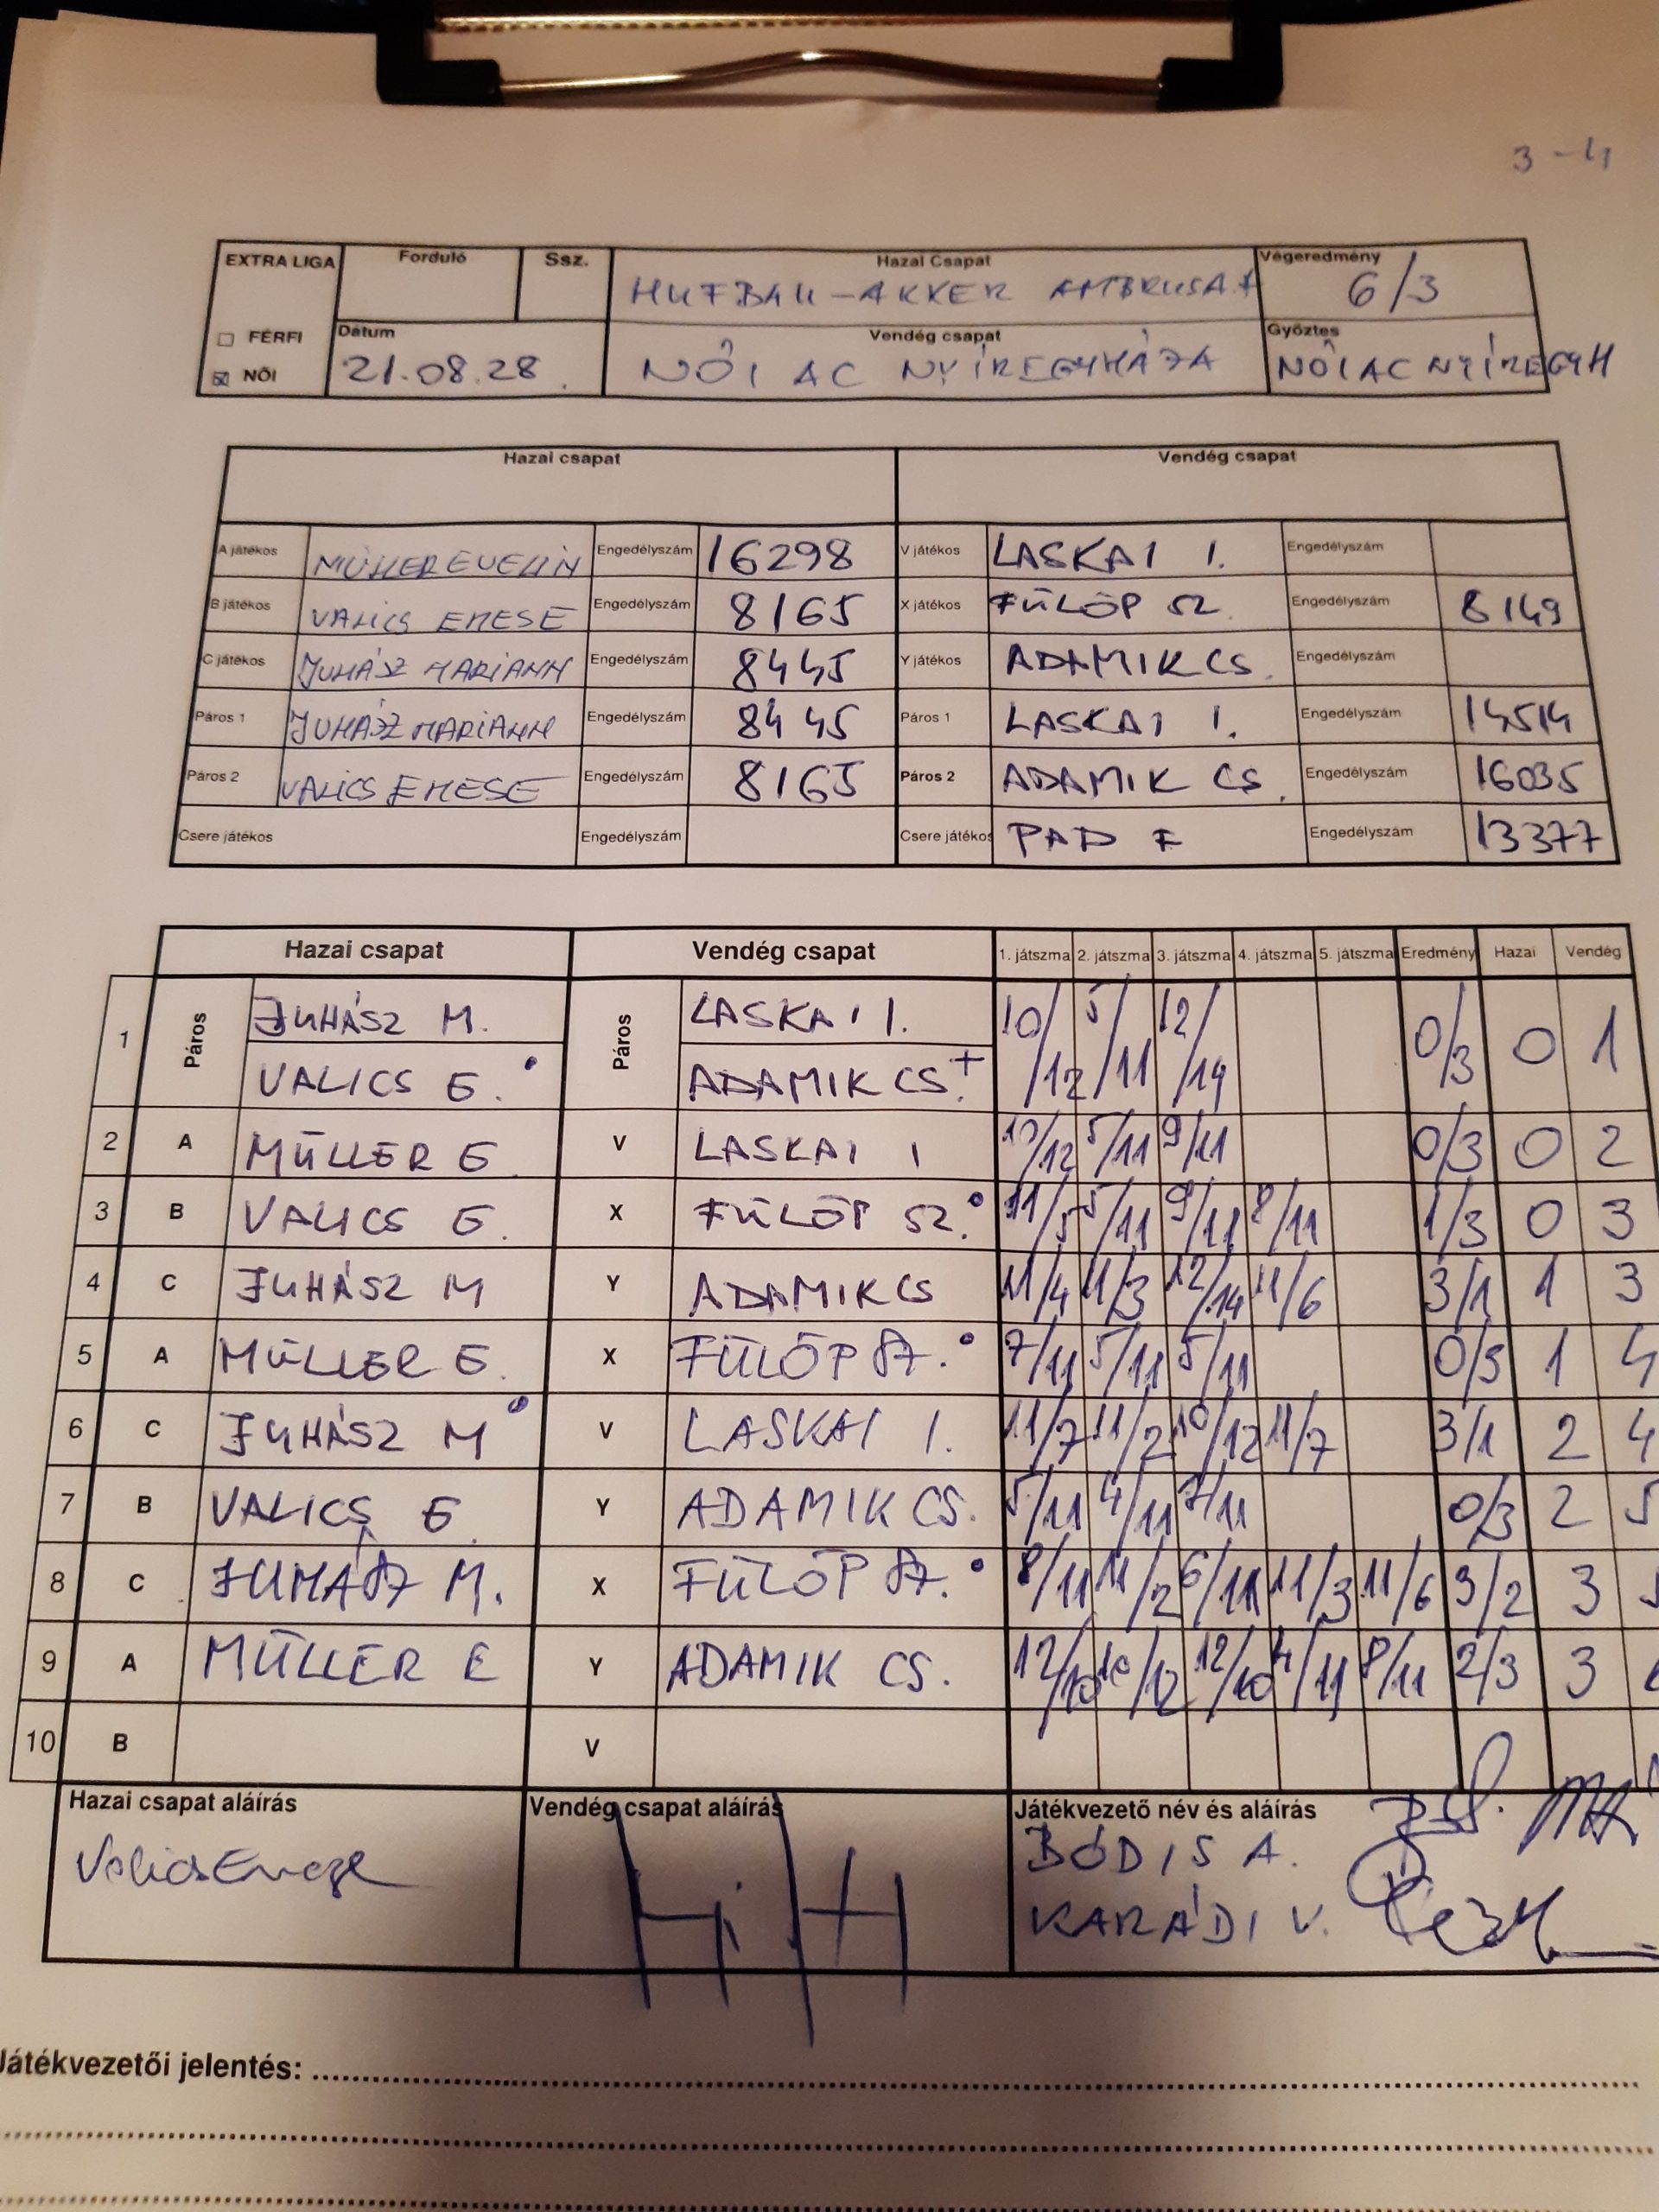 3-4
EXTRA LIGA Forduló Ssz. Hazai Csapat Végeredmény
HUFBAU-AKKER AMBRUSA. 6/3
☐ FÉRFI Dátum Vendég csapat Győztes
☒ NŐI 21.08.28. NŐI AC NYÍREGYHÁZA NŐI AC NYÍREGYH
Hazai csapat Vendég csapat
A játékos MÜLLER EVELIN Engedélyszám 16298 V játékos LASKAI I. Engedélyszám
B játékos VALICS EMESE Engedélyszám 8165 X játékos FÜLÖP SZ. Engedélyszám 8149
C játékos JUHÁSZ MARIANN Engedélyszám 8445 Y játékos ADAMIK CS. Engedélyszám
Páros 1 JUHÁSZ MARIANN Engedélyszám 8445 Páros 1 LASKAI I. Engedélyszám 14514
Páros 2 VALICS EMESE Engedélyszám 8165 Páros 2 ADAMIK CS. Engedélyszám 16035
Csere játékos Engedélyszám Csere játékos PAD F Engedélyszám 13377
Hazai csapat Vendég csapat 1. játszma 2. játszma 3. játszma 4. játszma 5. játszma Eredmény Hazai Vendég
1 Páros JUHÁSZ M. Páros LASKAI I. 10/12 5/11 12/14 0/3 0 1
VALICS E. ADAMIK CS.
2 A MÜLLER E. V LASKAI I 10/12 5/11 9/11 0/3 0 2
3 B VALICS E. X FÜLÖP SZ. 11/5 5/11 9/11 8/11 1/3 0 3
4 C JUHÁSZ M Y ADAMIK CS 11/4 11/3 12/14 11/6 3/1 1 3
5 A MÜLLER E. X FÜLÖP SZ. 7/11 5/11 5/11 0/3 1 4
6 C JUHÁSZ M V LASKAI I. 11/7 11/2 10/12 11/7 3/1 2 4
7 B VALICS E. Y ADAMIK CS. 5/11 4/11 7/11 0/3 2 5
8 C JUHÁSZ M. X FÜLÖP SZ. 8/11 11/2 6/11 11/3 11/6 3/2 3 5
9 A MÜLLER E Y ADAMIK CS. 12/10 10/12 12/10 4/11 8/11 2/3 3 6
10 B V
Hazai csapat aláírás Vendég csapat aláírás Játékvezető név és aláírás
Valics Emese BÓDIS A.
KARÁDI V.
Játékvezetői jelentés: